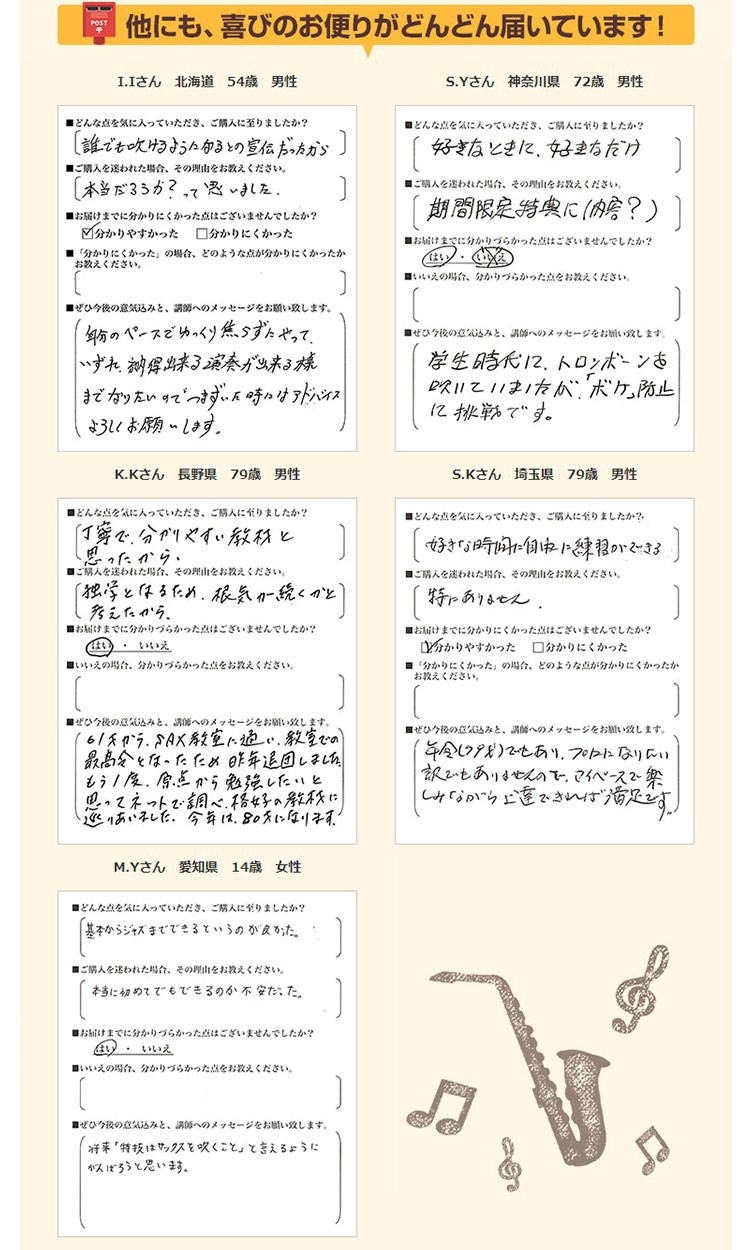 POST
他にも、喜びのお便りがどんどん届いています！
I.Iさん　北海道　54歳　男性
■どんな点を気に入っていただき、ご購入に至りましたか？
誰でも吹けるようになるとの宣伝だったから
■ご購入を迷われた場合、その理由をお教えください。
本当だろうか？って思いました.
■お届けまでに分かりにくかった点はございませんでしたか？
☑分かりやすかった　□分かりにくかった
■「分かりにくかった」の場合、どのような点が分かりにくかったか
お教えください。
■ぜひ今後の意気込みと、講師へのメッセージをお願い致します。
自分のペースでゆっくり焦らずにやって、
いずれ、納得出来る演奏が出来る様
までなりたいのでつまずいた時にはアドバイス
よろしくお願いします。
S.Yさん　神奈川県　72歳　男性
■どんな点を気に入っていただき、ご購入に至りましたか？
好きなときに、好きなだけ
■ご購入を迷われた場合、その理由をお教えください。
期間限定特典に(内容？)
■お届けまでに分かりづらかった点はございませんでしたか？
はい・いいえ
■いいえの場合、分かりづらかった点をお教えください。
■ぜひ今後の意気込みと、講師へのメッセージをお願い致します。
学生時代に、トロンボーンを
吹いていましたが、「ボケ」防止
に挑戦です。
K.Kさん　長野県　79歳　男性
■どんな点を気に入っていただき、ご購入に至りましたか？
丁寧で、分かりやすい教材と
思ったから、
■ご購入を迷われた場合、その理由をお教えください。
独学となるため、根気が続くかと
考えたから。
■お届けまでに分かりづらかった点はございませんでしたか？
はい・いいえ
■いいえの場合、分かりづらかった点をお教えください。
■ぜひ今後の意気込みと、講師へのメッセージをお願い致します。
61才から、SAX教室に通い、教室での
最高令となったため昨年退団しました
もう1度、原点から勉強したいと
思ってネットで調べ、格好の教材に
巡りあいました。今年は、80才になります.
S.Kさん　埼玉県　79歳　男性
■どんな点を気に入っていただき、ご購入に至りましたか？
好きな時間に自由に練習ができる
■ご購入を迷われた場合、その理由をお教えください。
特にありません.
■お届けまでに分かりにくかった点はございませんでしたか？
☑分かりやすかった　□分かりにくかった
■「分かりにくかった」の場合、どのような点が分かりにくかったか
お教えください。
■ぜひ今後の意気込みと、講師へのメッセージをお願い致します。
年令(79才)でもあり、プロになりたい
訳でもありませんので、マイペースで楽
しみながら上達できれば満足です。
M.Yさん　愛知県　14歳　女性
■どんな点を気に入っていただき、ご購入に至りましたか？
基本からジャズまでできるというのが良かった。
■ご購入を迷われた場合、その理由をお教えください。
本当に初めてでもできるのか不安だった。
■お届けまでに分かりづらかった点はございませんでしたか？
はい・いいえ
■いいえの場合、分かりづらかった点をお教えください。
■ぜひ今後の意気込みと、講師へのメッセージをお願い致します。
将来「特技はサックスを吹くこと」と言えるように
がんばろうと思います。